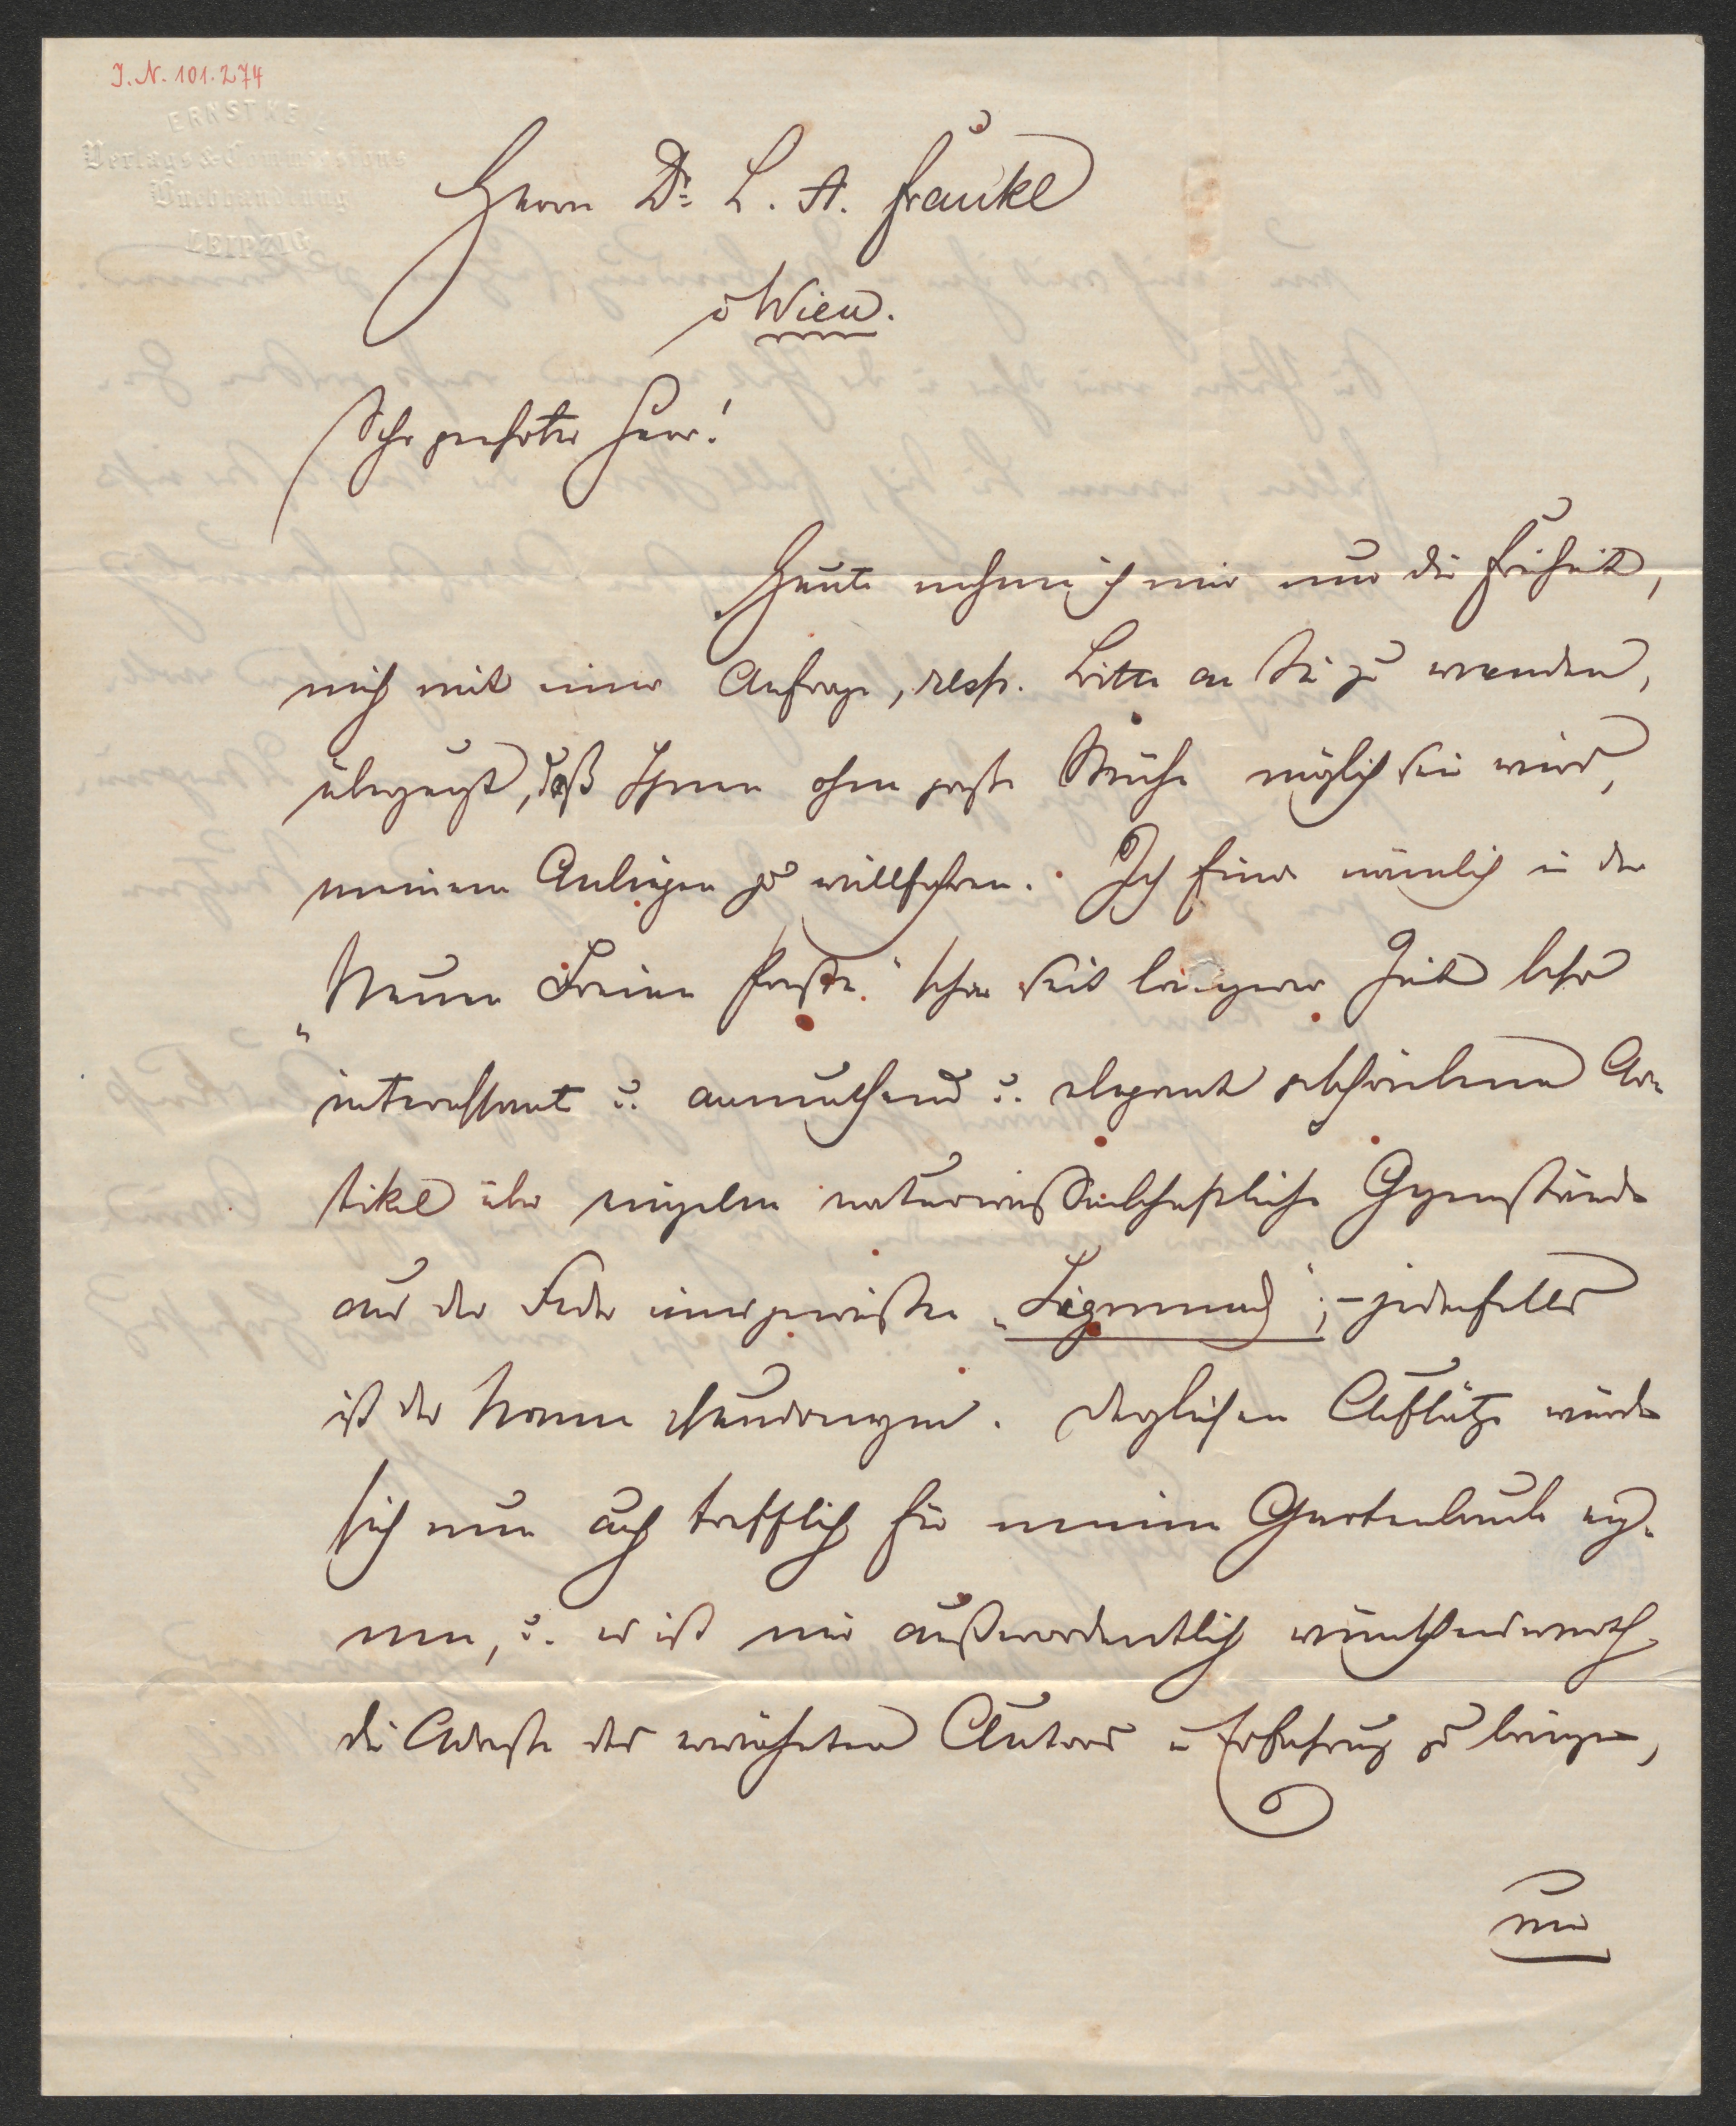 J. N. 101.274
ERNST KEIL
Verlags & Commissions
Buchhandlung
LEIPZIG
Herrn Dr. L. A. Frankl
i Wien.
Sehr geehrter Herr!
Heute nehme ich mir nur die Freiheit,
mich mit einer Anfrage, resp. Bitte an Sie zu wenden,
überzeugt, daß Ihnen ohne große Mühe möglich sein wird,
meinem Anliegen zu willfahren. Ich finde nämlich in der
„Neuen Freien Presse" schon seit längerer Zeit sehr
interessant u. anmuthend u. elegant geschriebene Ar-
tikel über einzelne naturwissenschaftliche Gegenstände
aus der Feder eines gewissen „Sigmund"; – jedenfalls
ist der Name pseudonym. Derglichen Aufsätze würde
sich nun auch trefflich für meine Gartenlaube eig-
nen, u. es ist mir außerordentlich wünschenswerth
die Adresse des erwähnten Autors in Erfahrung zu bringen,
um